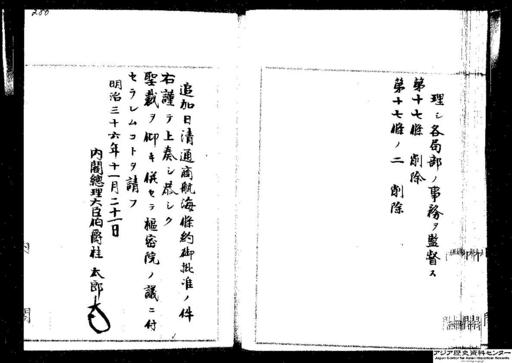 理シ各局部ノ事務ヲ監督ス
第十七條 削除
第十七條ノ二 削除
追加日清通商航海條約御批准ノ件
右謹テ上奏シ恭シク
聖裁ヲ仰キ併セテ樞密院ノ議ニ付
セラレムコトヲ請フ
明治三十六年十一月二十一日
內閣總理大臣伯爵桂太郎
200
アジア歴史資料センター
Japan Center for Asian Historical Records